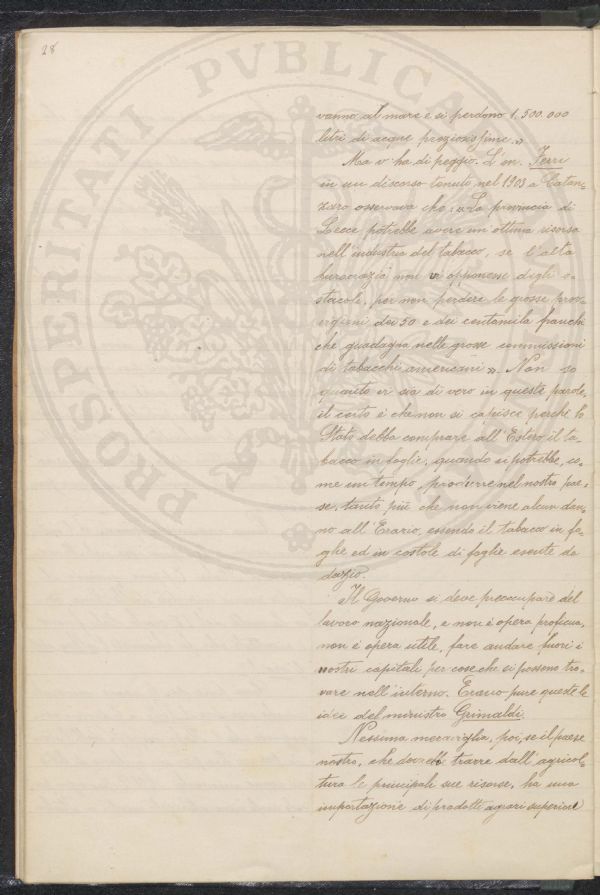 28
PROSPERITATI PVBLICAE
vanno al mare e si perdono 1.500.000
litri di acque preziosissime.»
Ma v'ha di peggio. L'on. Ferri
in un discorso tenuto nel 1903 a Catan=
zaro osservava che: «La provincia di
Lecce potrebbe avere un'ottima risorsa
nell'industria del tabacco, se l'alta
burocrazia non vi opponesse degli o=
stacoli, per non perdere le grosse prov=
vigioni dei 50 e dei centomila franchi
che guadagna nelle grosse commissioni
di tabacchi americani». Non so
quanto vi sia di vero in queste parole,
il certo è che non si capisce perchè lo
Stato debba comprare all'Estero il ta=
bacco in foglie, quando si potrebbe, co=
me un tempo, produrre nel nostro pae=
se, tanto più che non viene alcun dan=
no all'Erario, essendo il tabacco in fo=
glie ed in costole di foglie esente da
dazio.
Il Governo si deve preoccupare del
lavoro nazionale, e non è opera proficua,
non è opera utile, fare andare fuori i
nostri capitali per cose che si possono tro=
vare nell'interno. Erano pure queste le
idee del ministro Grimaldi.
Nessuna meraviglia, poi, se il paese
nostro, che dovrebbe trarre dall'agricol=
tura le principali sue risorse, ha una
importazione di prodotti agrari superiore